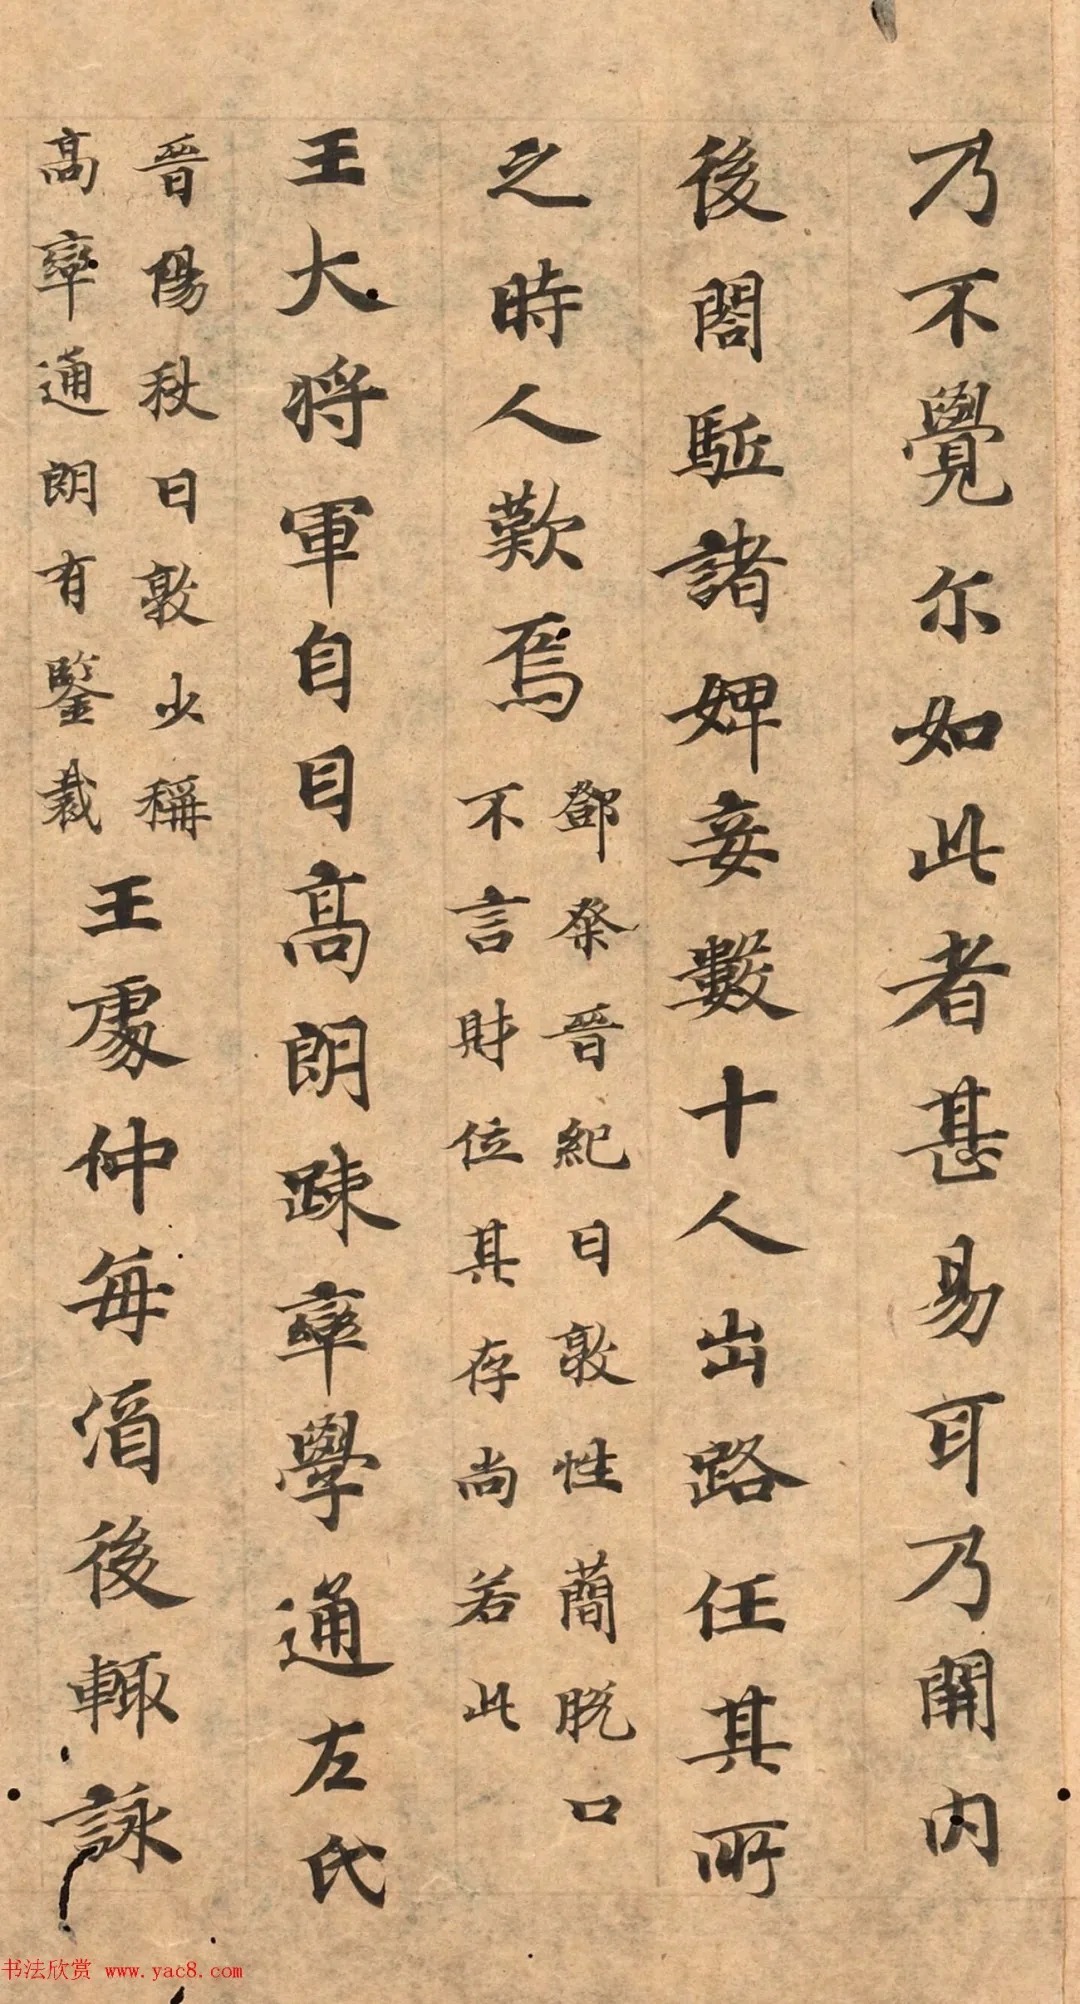 乃不覺尒如此者甚易耳乃開內
後閤駈諸婢妾數十人出路任其所
之時人歎焉
鄧粲晉紀曰敦性蕳脫口
不言財位其存尚若此
王大将軍自目高朗踈率學通左氏
晉陽秋曰敦少稱
高率通朗有鑒裁
王處仲每酒後輙詠
书法欣赏 www.yac8.com